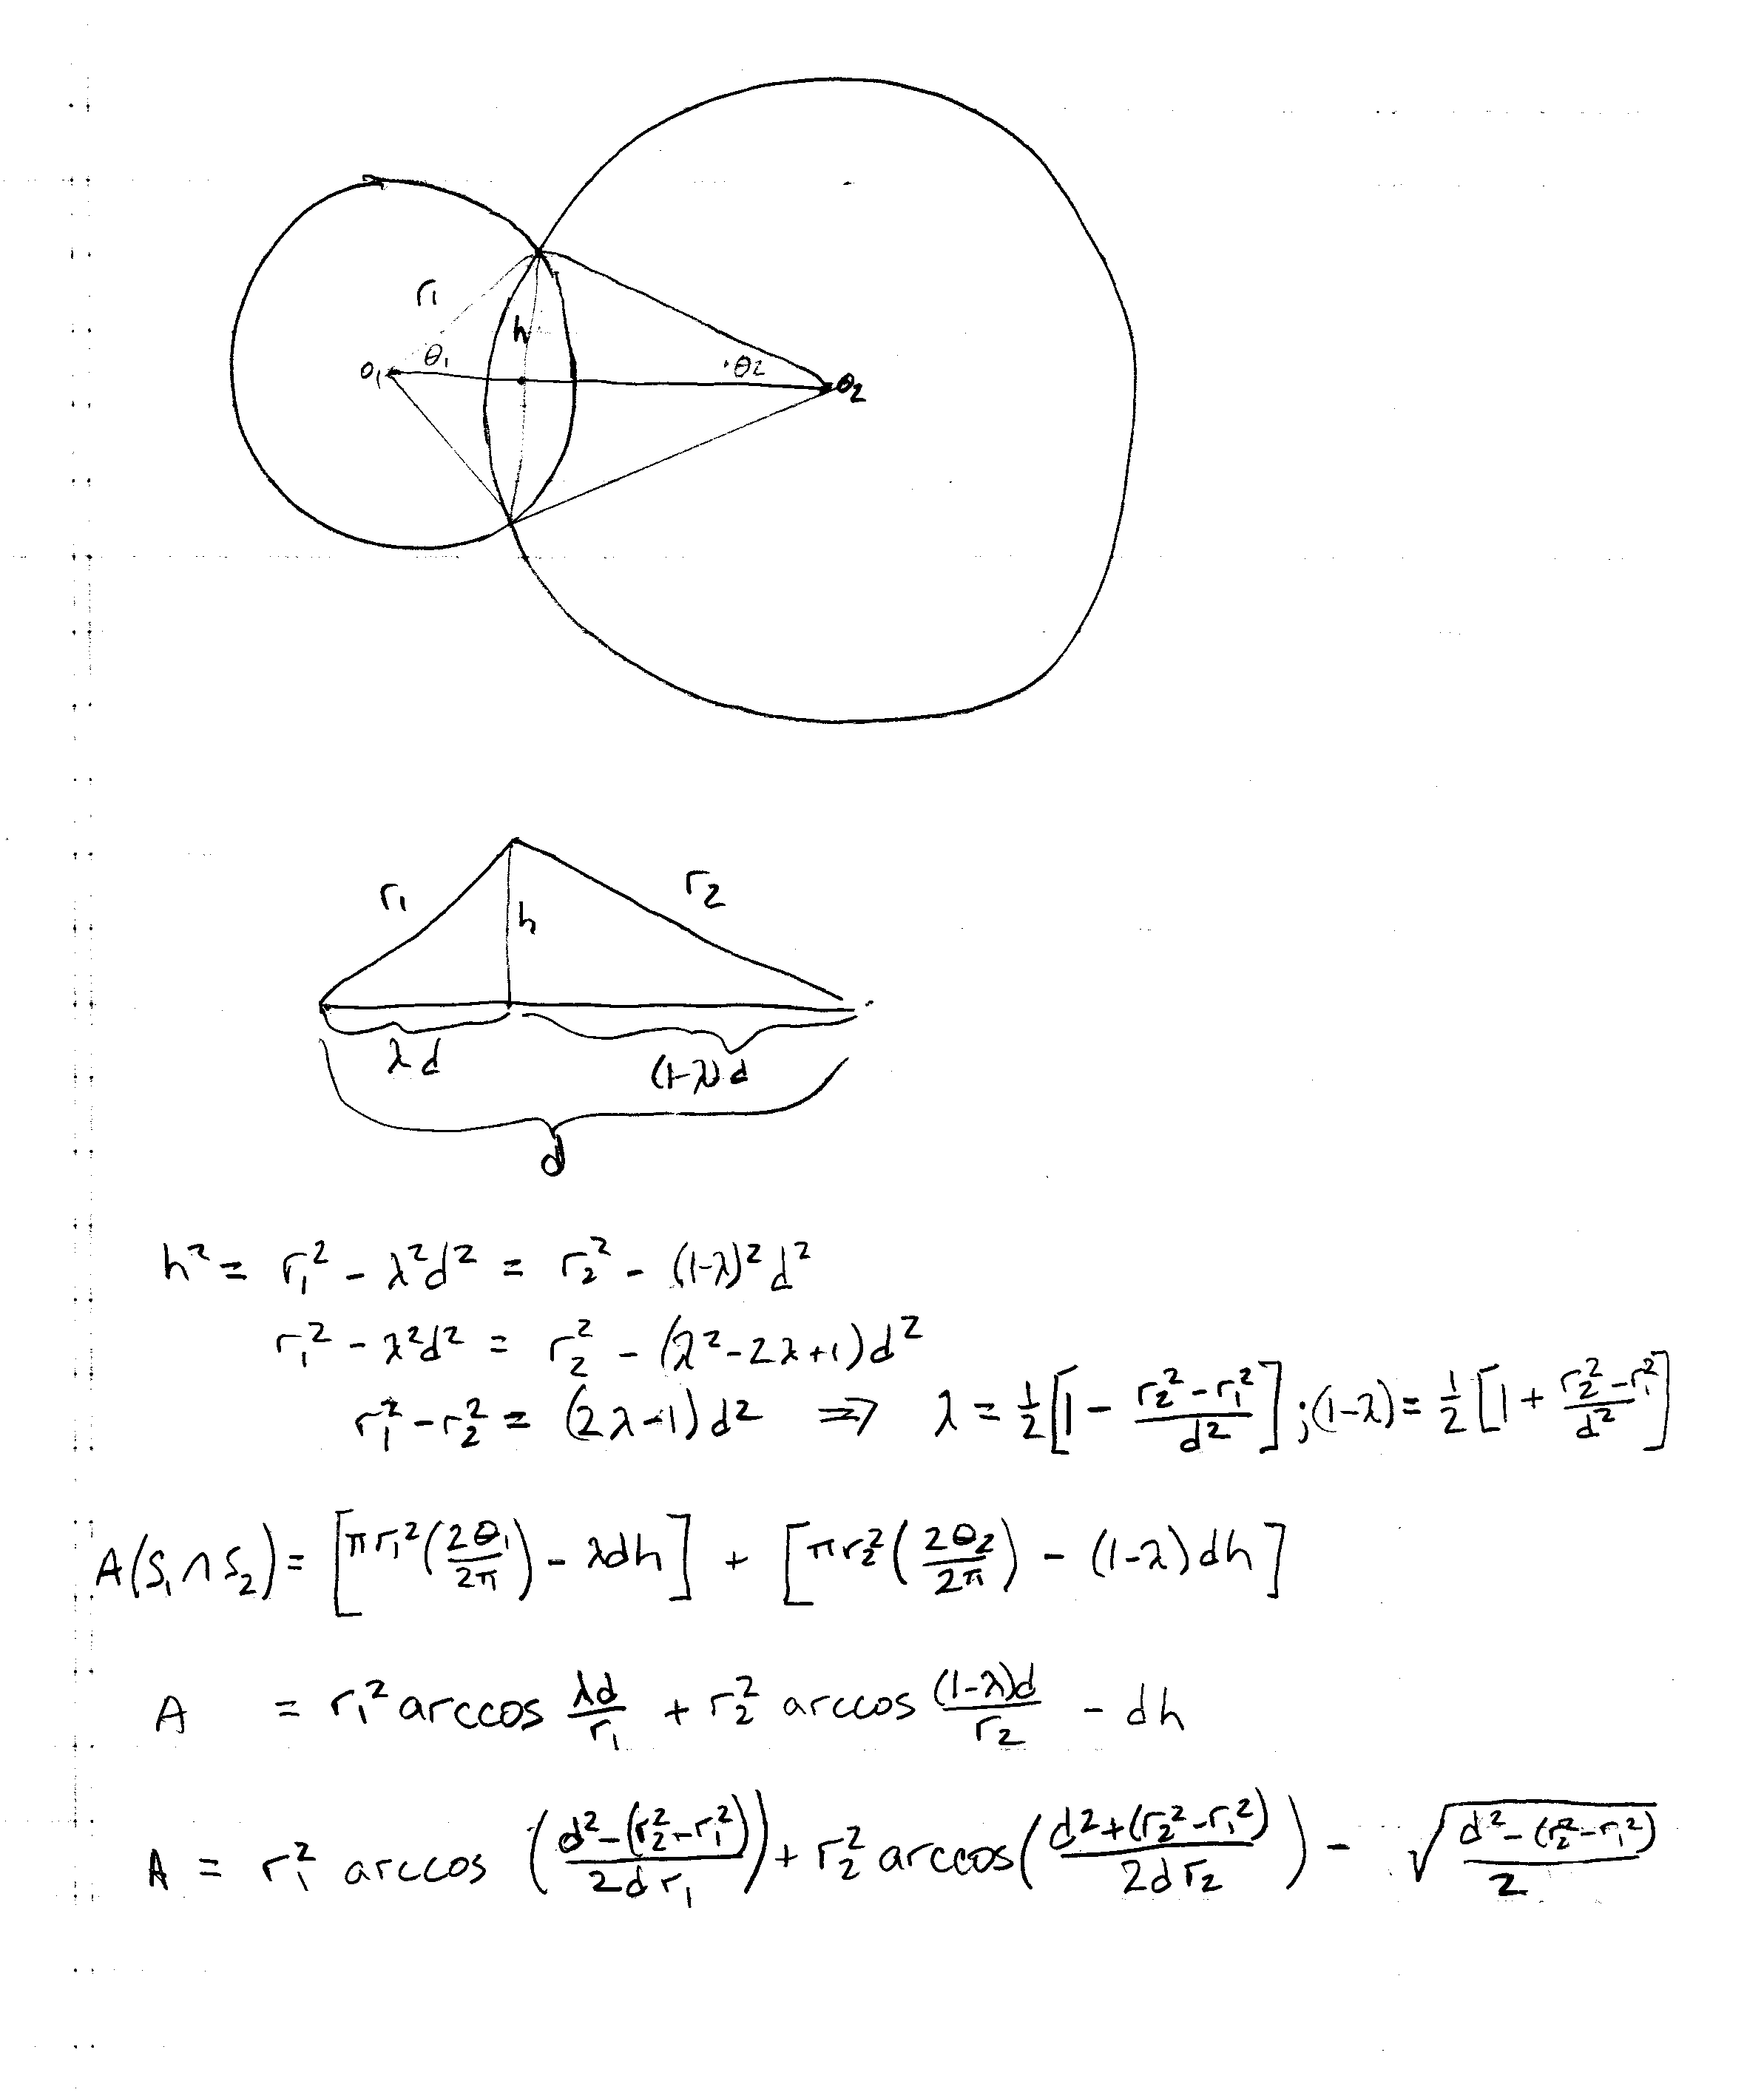 r₁
h
θ₁
θ₂
O₁
O₂
r₁
r₂
h
λd
(1-λ)d
d
h² = r₁² - λ²d² = r₂² - (1-λ)²d²
r₁² - λ²d² = r₂² - (λ²-2λ+1)d²
r₁² - r₂² = (2λ-1)d² ⇒ λ = ½[1 - (r₂²-r₁²)/d²] ; (1-λ) = ½[1 + (r₂²-r₁²)/d²]
A(S₁∩S₂) = [πr₁²(2θ₁/2π) - λdh] + [πr₂²(2θ₂/2π) - (1-λ)dh]
A = r₁² arccos λd/r₁ + r₂² arccos (1-λ)d/r₂ - dh
A = r₁² arccos ((d²-(r₂²-r₁²))/2dr₁) + r₂² arccos((d²+(r₂²-r₁²))/2dr₂) - √((d²-(r₂²-r₁²))/2)